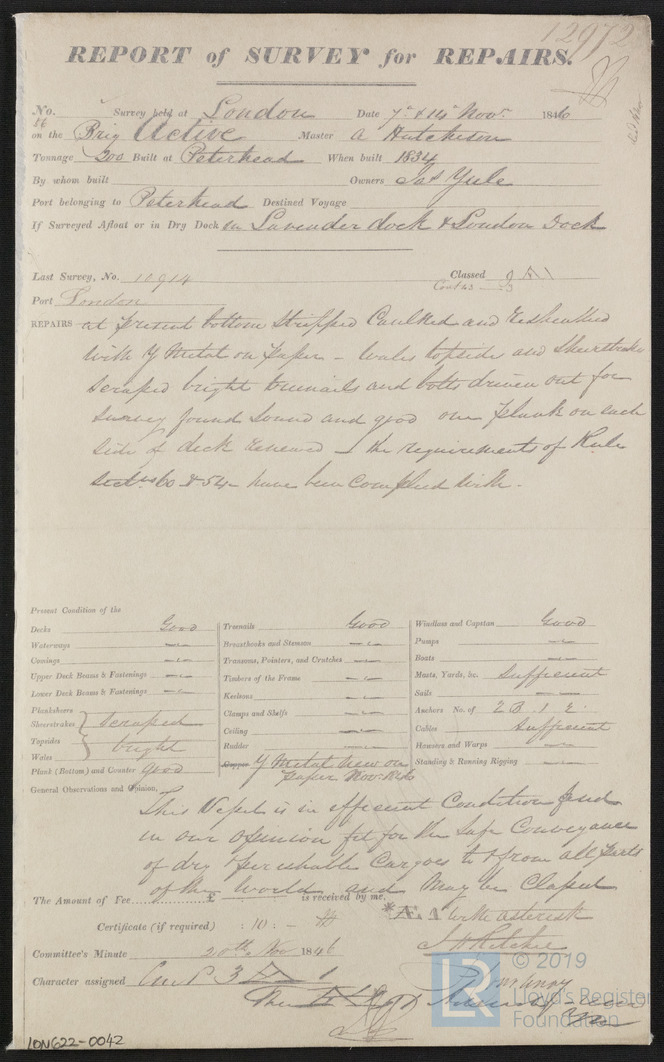 12972
REPORT of SURVEY for REPAIRS.
No. Survey held at London Date 7th & 14th Novr 1846
on the Brig Active Master A Hutchison
Tonnage 200 Built at Peterhead When built 1834
By whom built Owners Jas Yule
Port belonging to Peterhead Destined Voyage
If Surveyed Afloat or in Dry Dock in Lavender dock & London Dock
Last Survey, No. 10914 Classed
Port London
REPAIRS at present bottom stripped Caulked and Resheathed
with Y Metal on Paper – Wales topsides and Sheerstrakes
scraped bright treenails and bolts driven out for
survey found sound and good one plank on each
side of deck renewed – the requirements of Rule
Sectns 60 & 54 have been complied with.
Present Condition of the
Decks Good
Waterways
Comings
Upper Deck Beams & Fastenings
Lower Deck Beams & Fastenings
Planksheers
Sheerstrakes scraped
Topsides bright
Wales
Plank (Bottom) and Counter good
Treenails Good
Breasthooks and Stemson
Transoms, Pointers, and Crutches
Timbers of the Frame
Keelsons
Clamps and Shelfs
Ceiling
Rudder
Copper Y Metal new on
paper Novr 1846
Windlass and Capstan Good
Pumps
Boats
Masts, Yards, &c. Sufficient
Sails
Anchors No. of 2 B. 1. 2.
Cables Sufficient
Hawsers and Warps
Standing & Running Rigging
General Observations and Opinion,
This Vessel is in efficient Condition and
in our opinion fit for the Safe Conveyance
of dry & perishable Cargoes to & from all parts
of the World and may be Classed
The Amount of Fee £ is received by me,
*Æ 1 with asterisk
Certificate (if required) : 10 : -
Committee's Minute 20th Nov 1846
Character assigned
© 2019
LR
Lloyd's Register
Foundation
LON622-0042